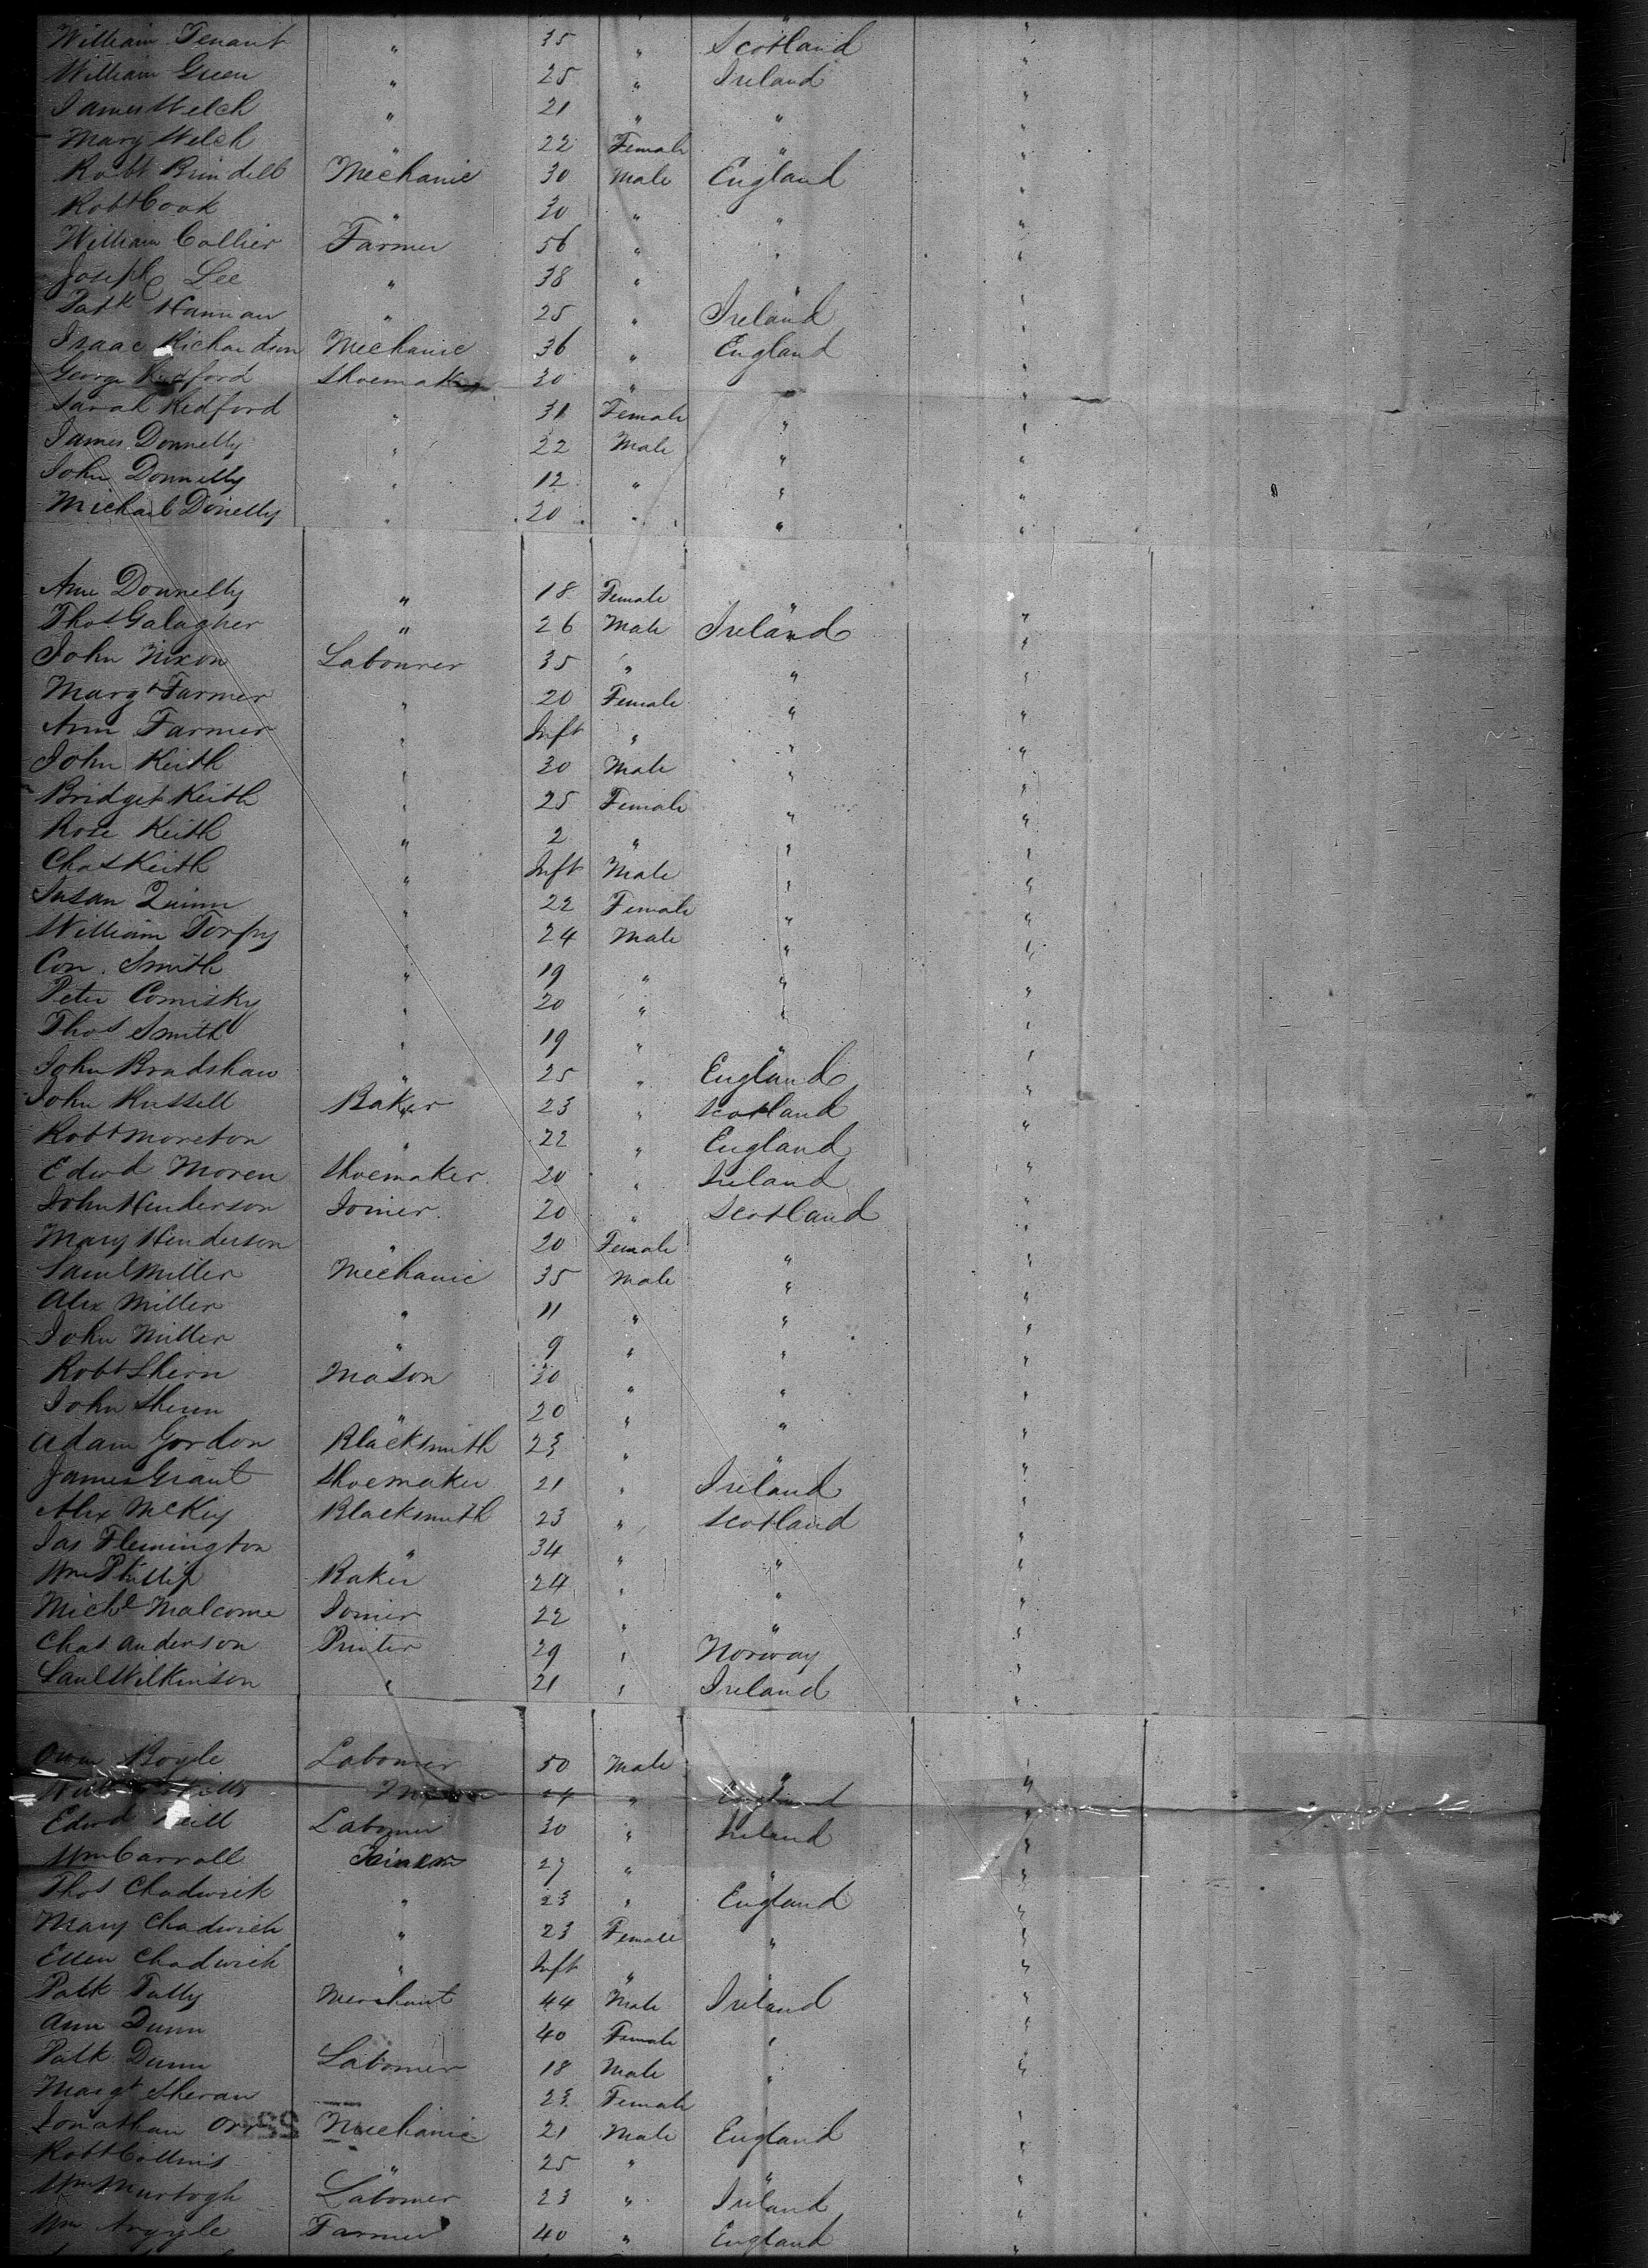 William Tenant " 35 " Scotland "
William Green " 25 " Ireland "
James Welch " 21 " " "
Mary Welch " 22 Female " "
Robt Brindell Mechanic 30 Male England "
Robt Cook " 30 " " "
William Collier Farmer 56 " " "
Joseph Lee " 38 " " "
Patk Hannan " 25 " Ireland "
Isaac Richardson Mechanic 36 " England "
George Redford Shoemaker 30 " "
Sarah Redford " 31 Female " "
James Donnelly " 22 Male " "
John Donnelly " 12 " " "
Michael Donelly " 20 " " "
Ann Donnelly " 18 Female "
Thos Galagher " 26 Male Ireland "
John Nixon Labourer 35 " " "
Margt Farmer " 20 Female " "
Ann Farmer " Inft " " "
John Keith " 30 Male " "
Bridget Keith " 25 Female " "
Rose Keith " 2 " " "
Chas Keith " Inft Male " "
Susan Quinn " 22 Female " "
William Torpy " 24 Male " "
Con. Smith " 19 " " "
Peter Comisky " 20 " " "
Thos Smith " 19 " " "
John Bradshaw " 25 " England "
John Russell Baker 23 " Scotland "
Robt Moreton " 22 " England "
Edwd Moren Shoemaker 20 " Ireland "
John Henderson Joiner 20 " Scotland "
Mary Henderson " 20 Female " "
Saml Miller Mechanic 35 Male " "
Alex Miller " 11 " " "
John Miller " 9 " " "
Robt Shirn Mason 30 " " "
John Sheen " 20 " " "
Adam Gordon Blacksmith 23 " " "
James Grant Shoemaker 21 " Ireland "
Alex McKey Blacksmith 23 " Scotland "
Jas Flemington " 34 " " "
Wm Phillip Baker 24 " " "
Michl Malcome Joiner 22 " " "
Chas Anderson Printer 29 " Norway "
Saul Wilkinson " 21 " Ireland "
Owen Boyle Labourer 50 Male " "
" England "
Edwd Neill Labourer 30 " Ireland "
Wm Carroll 27 " " "
Thos Chadwick " 23 " England "
Mary Chadwick " 23 Female " "
Ellen Chadwick " Inft " "
Patk Tully Merchant 44 Male Ireland "
Ann Dunn 40 Female " "
Patk Dunn Labourer 18 Male " "
Margt Sheran 23 Female
Jonathan Orr Mechanic 21 Male England "
Robt Collins " 25 " " "
Wm Murtogh Labourer 23 " Ireland "
Wm Argyle Farmer 40 " England "